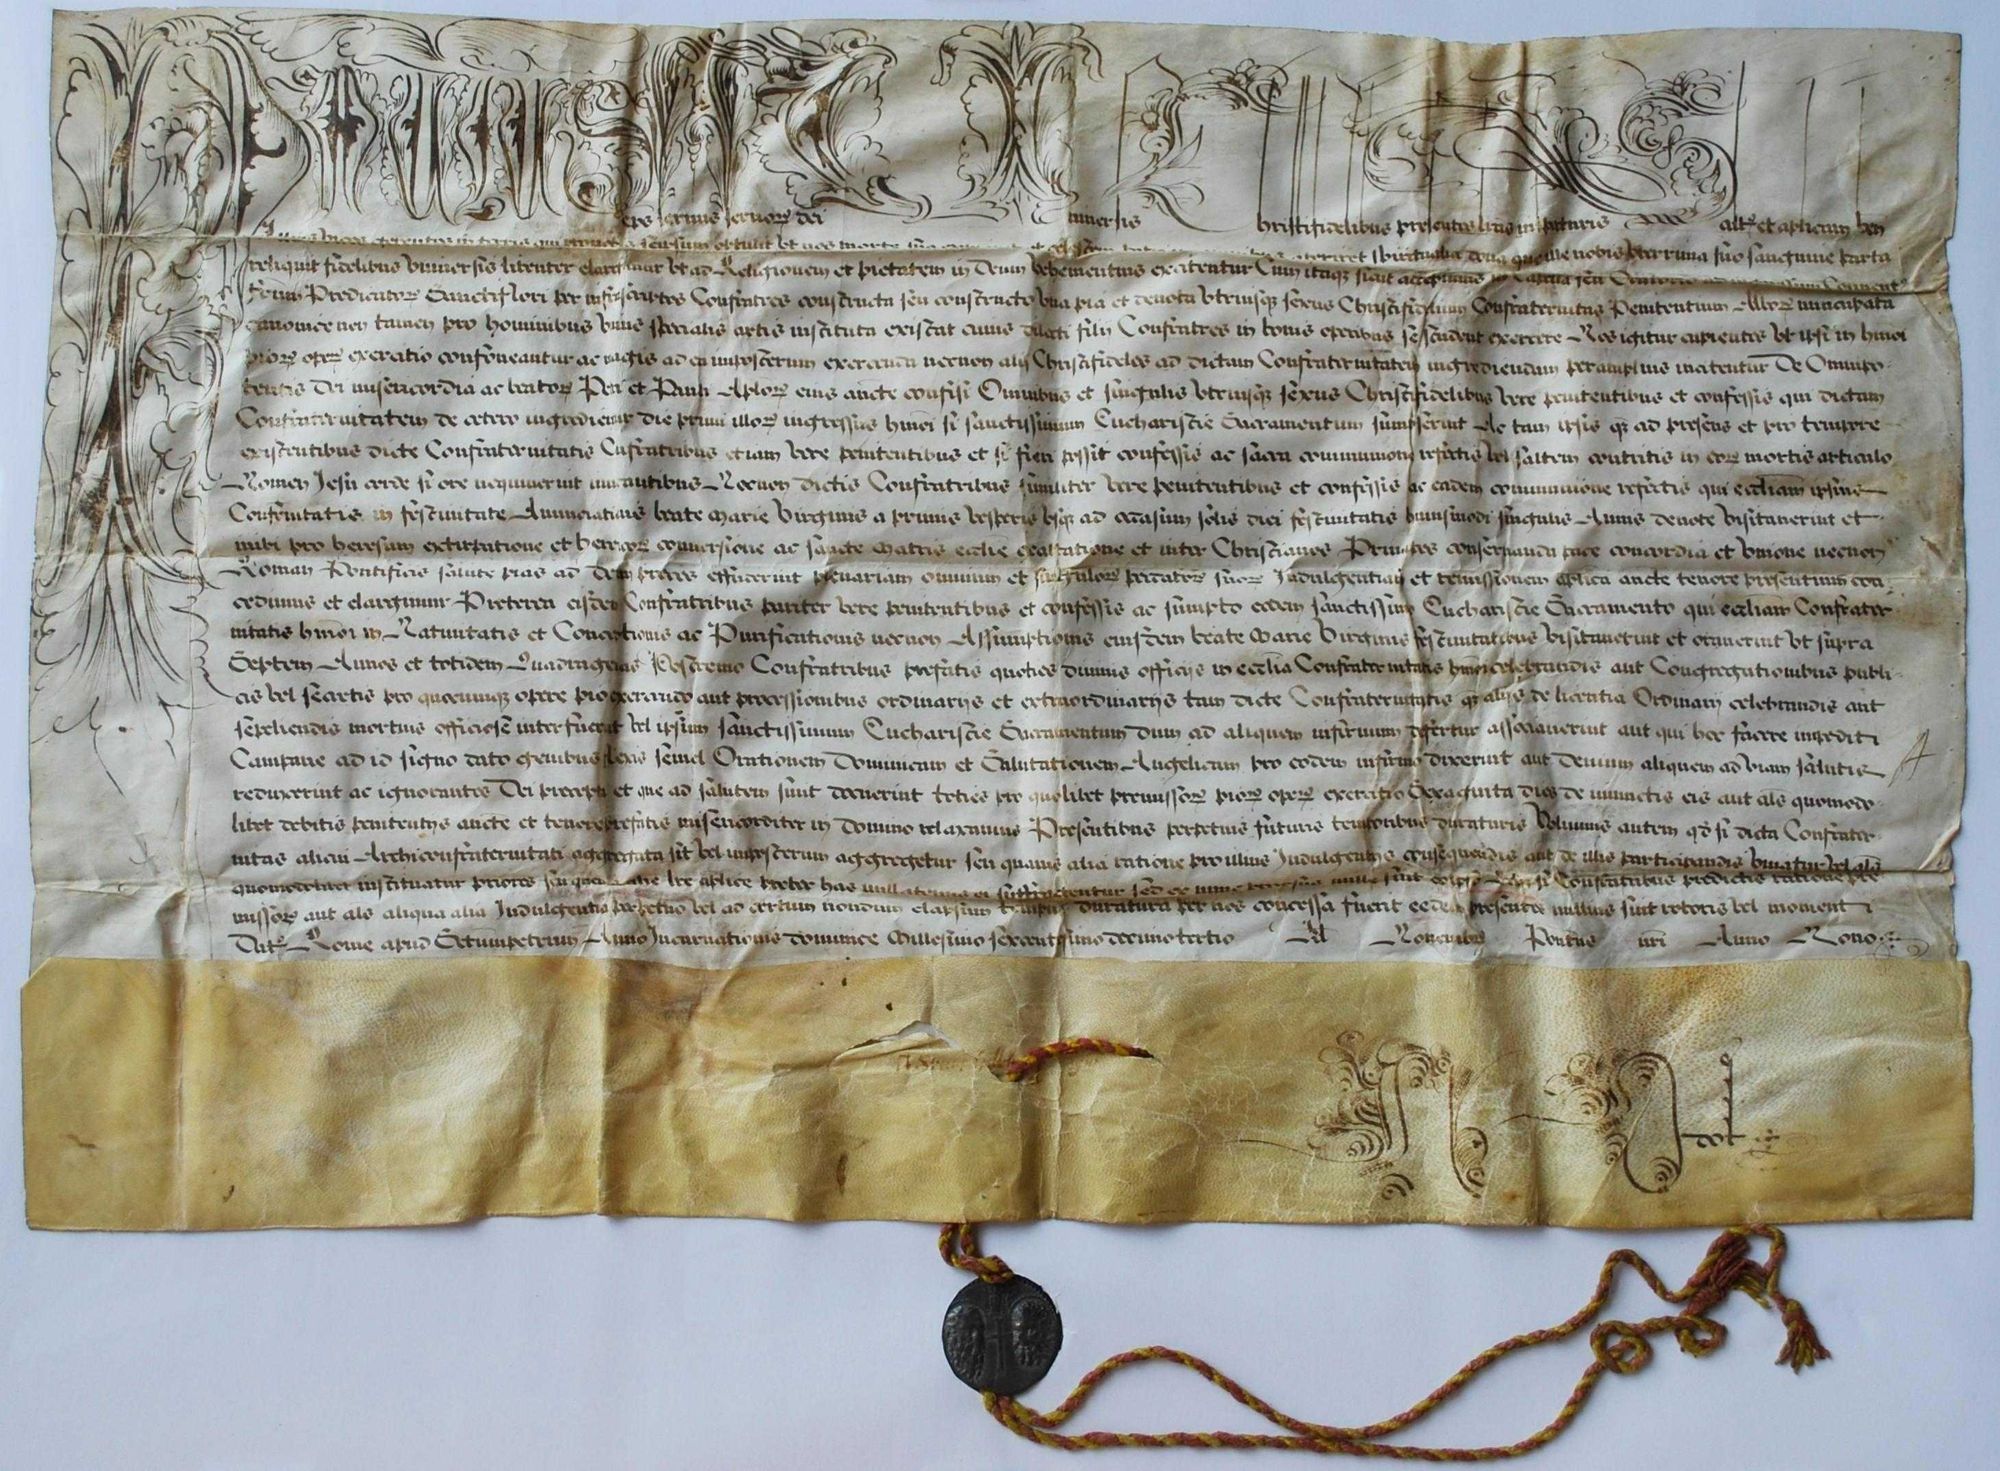 Paulus
eps servus servor dei universis Christifidelibus presentes lras inspecturis saltem et aplicam ben
reliquit fidelibus Universis libenter elargimur Ut ad Religionem et pietatem in Deum vehementius excitentur Cum itaque sicut accepimus in
frum Predicator Sanctiflori per infrascriptos Confratres constructa seu constructo una pia et devota Utriusq sexus Christifidelium Confraternitas Penitentium Albor nuncupata
canonice non tamen pro hominibus unius specialis artis instituta existat cuius dilecti filii Confratres in bonis operibus se student exercere Nos igitur cupientes Ut ipsi in hmoi
pior oper exercitio confoveantur ac magis ad ea imposterum exercenda necnon alij Christifideles ad dictam Confraternitatem ingrediendum peramplius incitentur De Omnipo
tentis Dei misericordia ac beator Petri et Pauli Aplor eius aucte confisi Omnibus et singulis Utriusq sexus Christifidelibus vere penitentibus et confessis qui dictam
Confraternitatem de cetero ingredientur die primi illor ingressus hmoi si sanctissimum Eucharistie Sacramentum sumpserint Ac tam ipsis q ad presens et pro tempore
existentibus dicte Confraternitatis Cofratribus etiam vere penitentibus et si fieri possit confessis ac sacra communione refectis vel saltem contritis in eor mortis articulo
Nomen Jesu corde si ore nequiverint invocantibus Necnon dictis Confratribus similiter vere penitentibus et confessis ac eadem communione refectis qui eccliam ipsius
Confrnitatis in festivitate Annunciationis beate Marie Virginis a primis vesperis usq ad occasum solis diei festivitatis huiusmodi singulis Annis devote visitaverint et
inibi pro heresum extirpatione et hereticor conversione ac sancte Matris ecclie exaltatione et inter Christianos Principes conservanda pace concordia et Unione necnon
Romani Pontificis salute pias ad Deum preces effuderint plenariam omnium et singulor peccator suor Indulgentiam et remissionem aplica aucte tenore presentium con
cedimus et elargimur Preterea eisdem Confratribus pariter vere penitentibus et confessis ac sumpto eodem sanctissimo Eucharistie Sacramento qui eccliam Confrater
nitatis hmoi in Nativitatis et Conceptionis ac Purificationis necnon Assumptionis eiusdem beate Marie Virginis festivitatibus visitaverint et oraverint Ut supra
Septem Annos et totidem Quadragenas Postremo Confratribus prefatis quoties divinis officijs in ecclia Confraternitatis hmoi celebrandis aut Congregationibus publi
cis vel secretis pro quocumq opere pio exercendo aut processionibus ordinarijs et extraordinarijs tam dicte Confraternitatis q alijs de licentia Ordinarij celebrandis aut
sepeliendis mortuis officiose interfuerint vel ipsum sanctissimum Eucharistie Sacramentum dum ad aliquem infirmum defertur associaverint aut qui hoc facere impediti
Campane ad id signo dato genibus flexis semel Orationem Dominicam et Salutationem Angelicam pro eodem infirmo dixerint aut Devium aliquem ad viam salutis
reduxerint ac ignorantes Dei precepta et que ad salutem sunt docuerint toties pro quolibet premissor pior oper exercitio Sexaginta dies de iniunctis eis aut als quomodo
libet debitis penitentijs aucte et tenore prefatis misericorditer in Domino relaxamus Presentibus perpetuis futuris temporibus duraturis Volumus autem qd si dicta Confrater
nitas alicui Archiconfraternitati aggregata sit vel imposterum aggregetur seu quavis alia ratione pro illius Indulgentijs consequendis aut de illis participandis Uniatur vel als
quomodolibet instituatur priores seu quevis alie lre aplice preter has nullatenus ei suffragentur sed ex nunc prorsus nulle sint eoipso Et si Confratribus predictis ratione pre
missor aut als aliqua alia Indulgentia perpetuo vel ad certum nondum elapsum tempus duratura per nos concessa fuerit eedem presentes nullius sint roboris vel momenti
Dat Rome apud Sctumpetrum Anno Incarnationis dominice Millesimo sexcentesimo decimotertio Kl Novembris Pontus nri Anno Nono